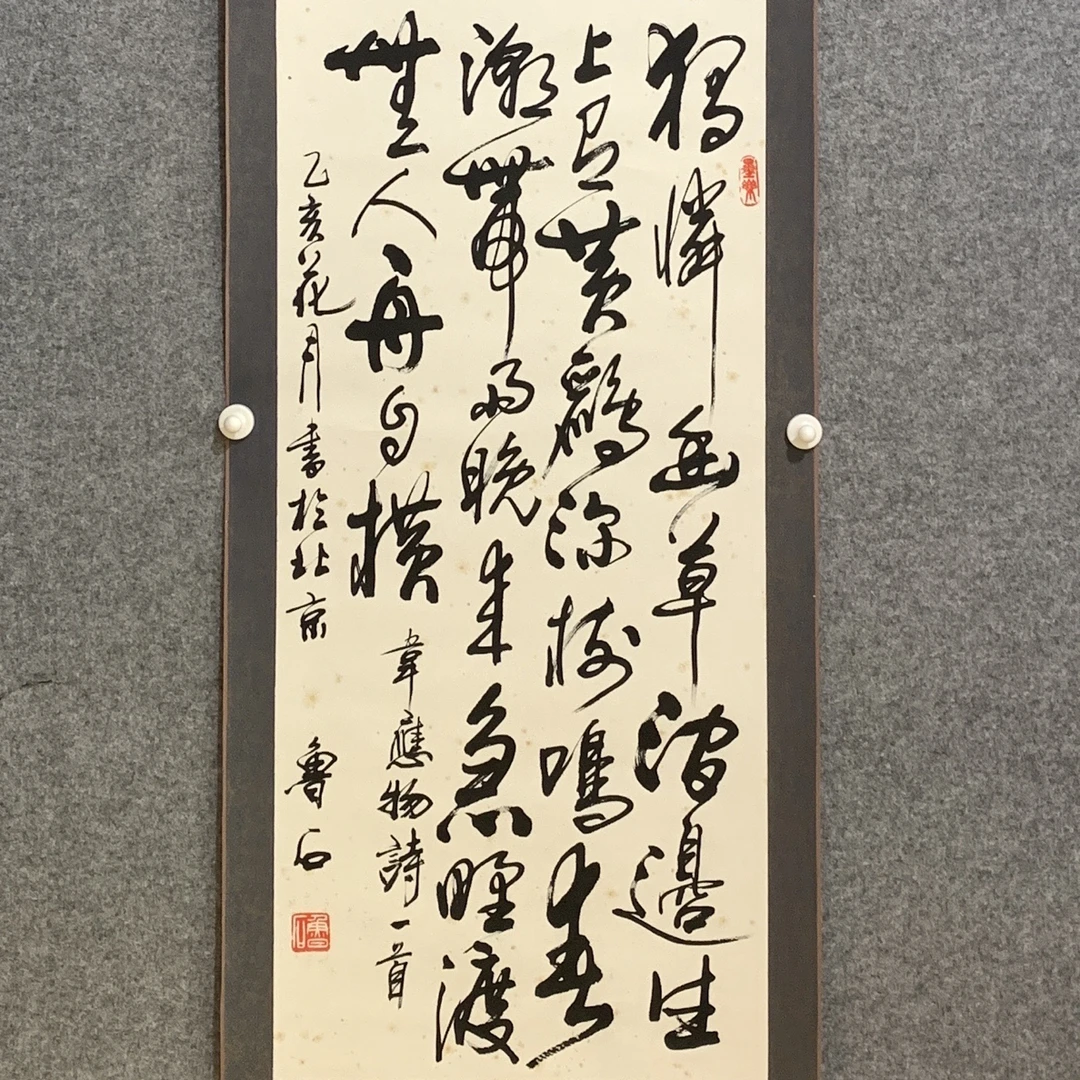 獨憐幽草澗邊生
上有黃鸝深樹鳴春
潮帶雨晚來急野渡
無人舟自橫
韋應物詩一首
乙亥花月書於北京 魯石
魯石